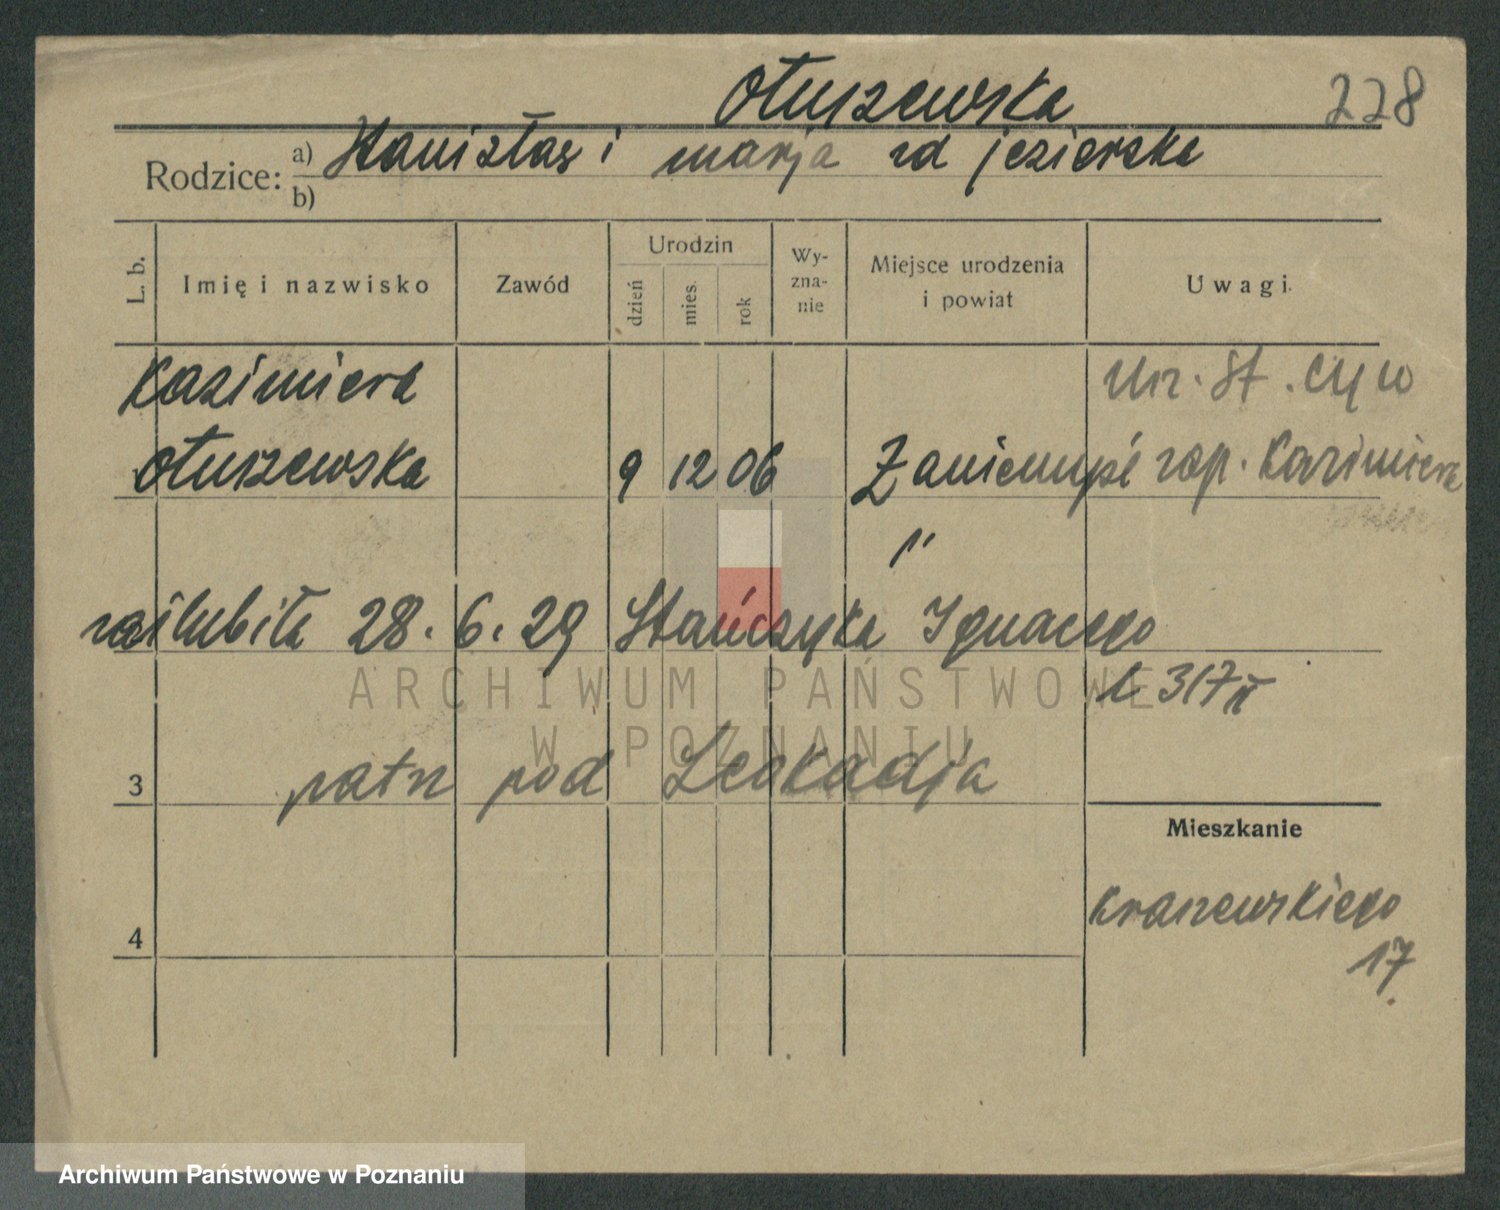 Otuszewska 228
Rodzice: a) Stanisław i Marja zd Jezierska
b)
L. b. Imię i nazwisko Zawód Urodzin dzień mies. rok Wy-zna-nie Miejsce urodzenia i powiat Uwagi.
Kazimiera Urz. St. Cyw
Otuszewska 9 12 06 Zaniemyśl zap. Kazimiera
"
zaślubiła 28. 6. 29 Stańczyka Ignacego
L 317 II
3 patrz pod Leokadja
Mieszkanie
4 Kraszewskiego
17
ARCHIWUM PAŃSTWOWE
W POZNANIU
Archiwum Państwowe w Poznaniu